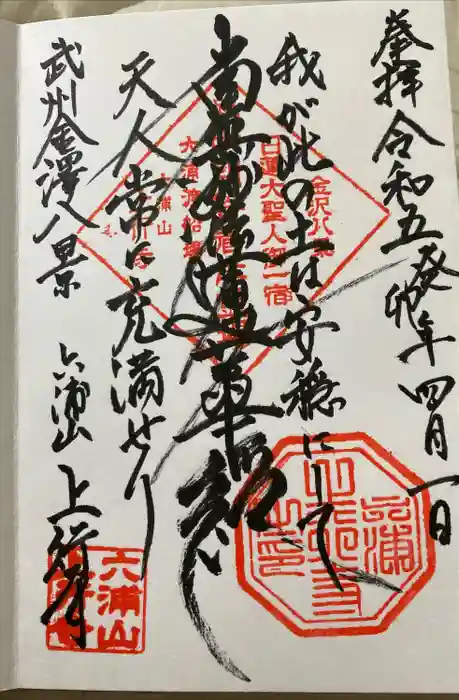 奉拝 令和五癸卯年 四月一日
我が此の土は安穏にして
南無妙法蓮華経
天人常に充満せり
武州金澤八景 六浦山 上行寺
金沢八景
日蓮大聖人御一宿
六浦山
六浦山